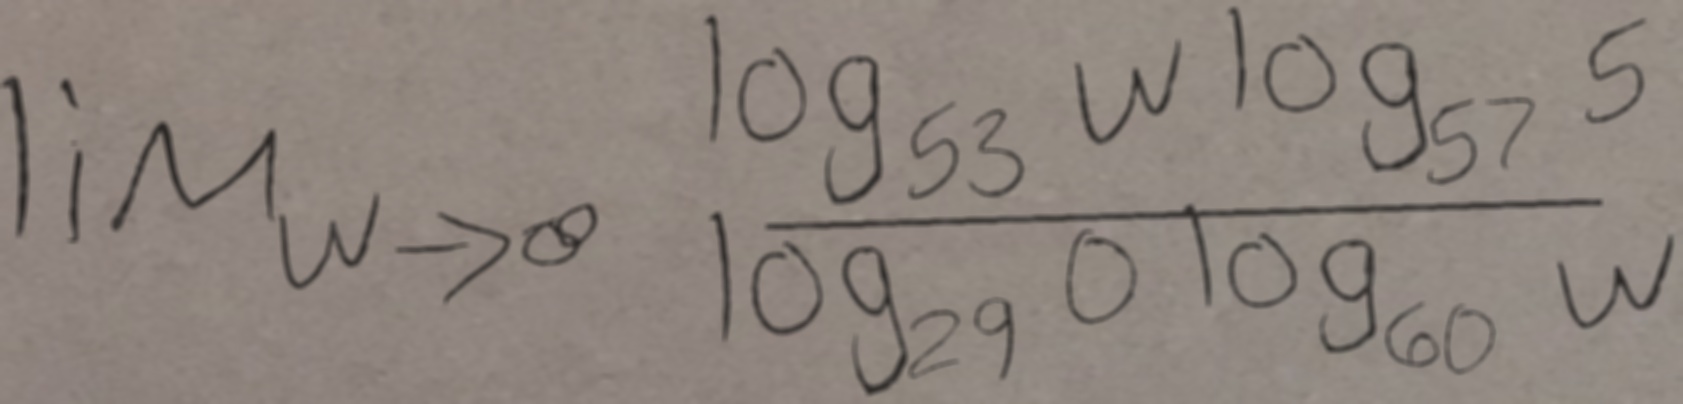 \lim_{w \to \infty} \frac{\log_{53} w \log_{57} s}{\log_{29} 0 \log_{60} w}